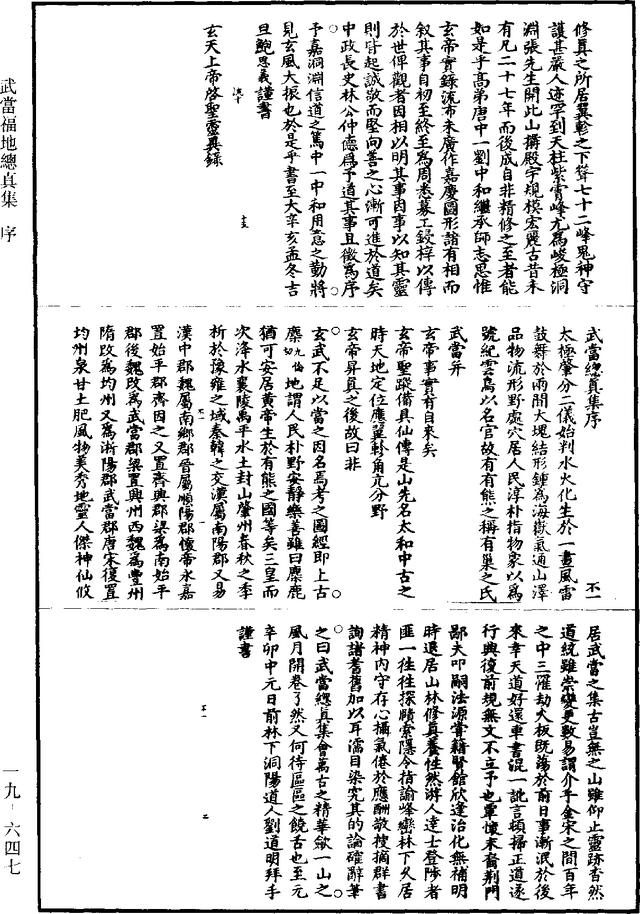 武當福地總真集 序
一九‧六四七
修真之所居翼軫之下聳七十二峰鬼神守
護甚嚴人迹罕到天柱紫霄峰尤為峻極洞
淵張先生開此山搆殿宇規模宏麗古昔未
有凡二十七年而後成自非精修之至者能
如是乎高弟唐中一劉中和繼承師志思惟
玄帝實錄流布未廣作嘉慶圖形諸有相而
叙其事自初至終至為周悉募工鋟梓以傳
於世俾觀者因相以明其事因事以知其靈
則皆起誠敬而堅向善之心漸可進於道矣
中政長史林公仲德為予道其事且徵為序
予嘉洞淵信道之篤中一中和用意之勤將
見玄風大振也於是乎書至大辛亥孟冬吉
旦鮑思義謹書
玄天上帝啓聖靈異錄
武當總真集序
太極肇分二儀始判水火化生於一畫風雷
鼓舞於兩間大塊結形鍾為海嶽氣通山澤
品物流形野處穴居人民淳朴指物象以為
號紀雲鳥以名官故有有熊之稱有巢之氏
武當并
玄帝事實有自來矣
玄帝聖蹤備具仙傳是山先名太和中古之
時天地定位應翼軫角亢分野
玄帝昇真之後故曰非
玄武不足以當之因名焉考之圖經即上古
麋九倫切地謂人民朴野安靜樂善雖曰麋鹿
猶可安居黄帝生於有熊之國等矣三皇而
次洚水襄陵禹平水土封山肇州春秋之季
析於豫雍之域秦韓之交漢屬南陽郡又易
漢中郡魏屬南鄉郡晉屬順陽郡懷帝永嘉
置始平郡齊因之又置齊興郡梁為南始平
郡後魏改為武當郡梁置興州西魏為豐州
隋改為均州又為淅陽郡武當郡唐宋復置
均州泉甘土肥風物美秀地靈人傑神仙攸
居武當之集古豈無之山雖仰止靈跡杳然
道統雖崇變更數易謂介乎金宋之間百年
之中三罹劫火板既蕩於前日事漸泯於後
來幸天道好還車書混一訛言頓掃正道遂
行興復前規無文不立予也覃懷末裔荆門
鄙夫叩嗣法源嘗籍賢館欣逢治化無補明
時退居山林修真養性然游人達士登陟者
匪一往往探賾索隱令指諭峰巒林下久居
精神內守存心攝氣倦於應酬敬搜摘群書
詢諸耆舊加以耳濡目染究其的論確辭筆
之曰武當總真集會萬古之精華歛一山之
風月開卷了然又何待區區之饒舌也至元
辛卯中元日前林下洞陽道人劉道明拜手
謹書